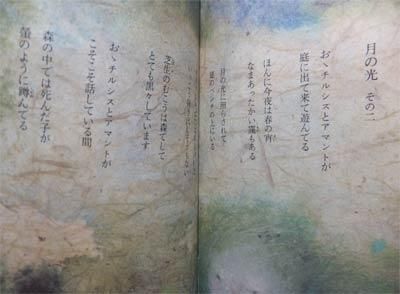 月の光 その二
おゝチルシスとアマントが
庭に出て来て遊んでる
ほんに今夜は春の宵
なまあったかい靄もある
月の光に照らされて
庭のベンチの上にいる
芝生のむこうは森でして
とても黒々しています
おゝチルシスとアマントが
こそこそ話している間
森の中では死んだ子が
蛍のように蹲んでる